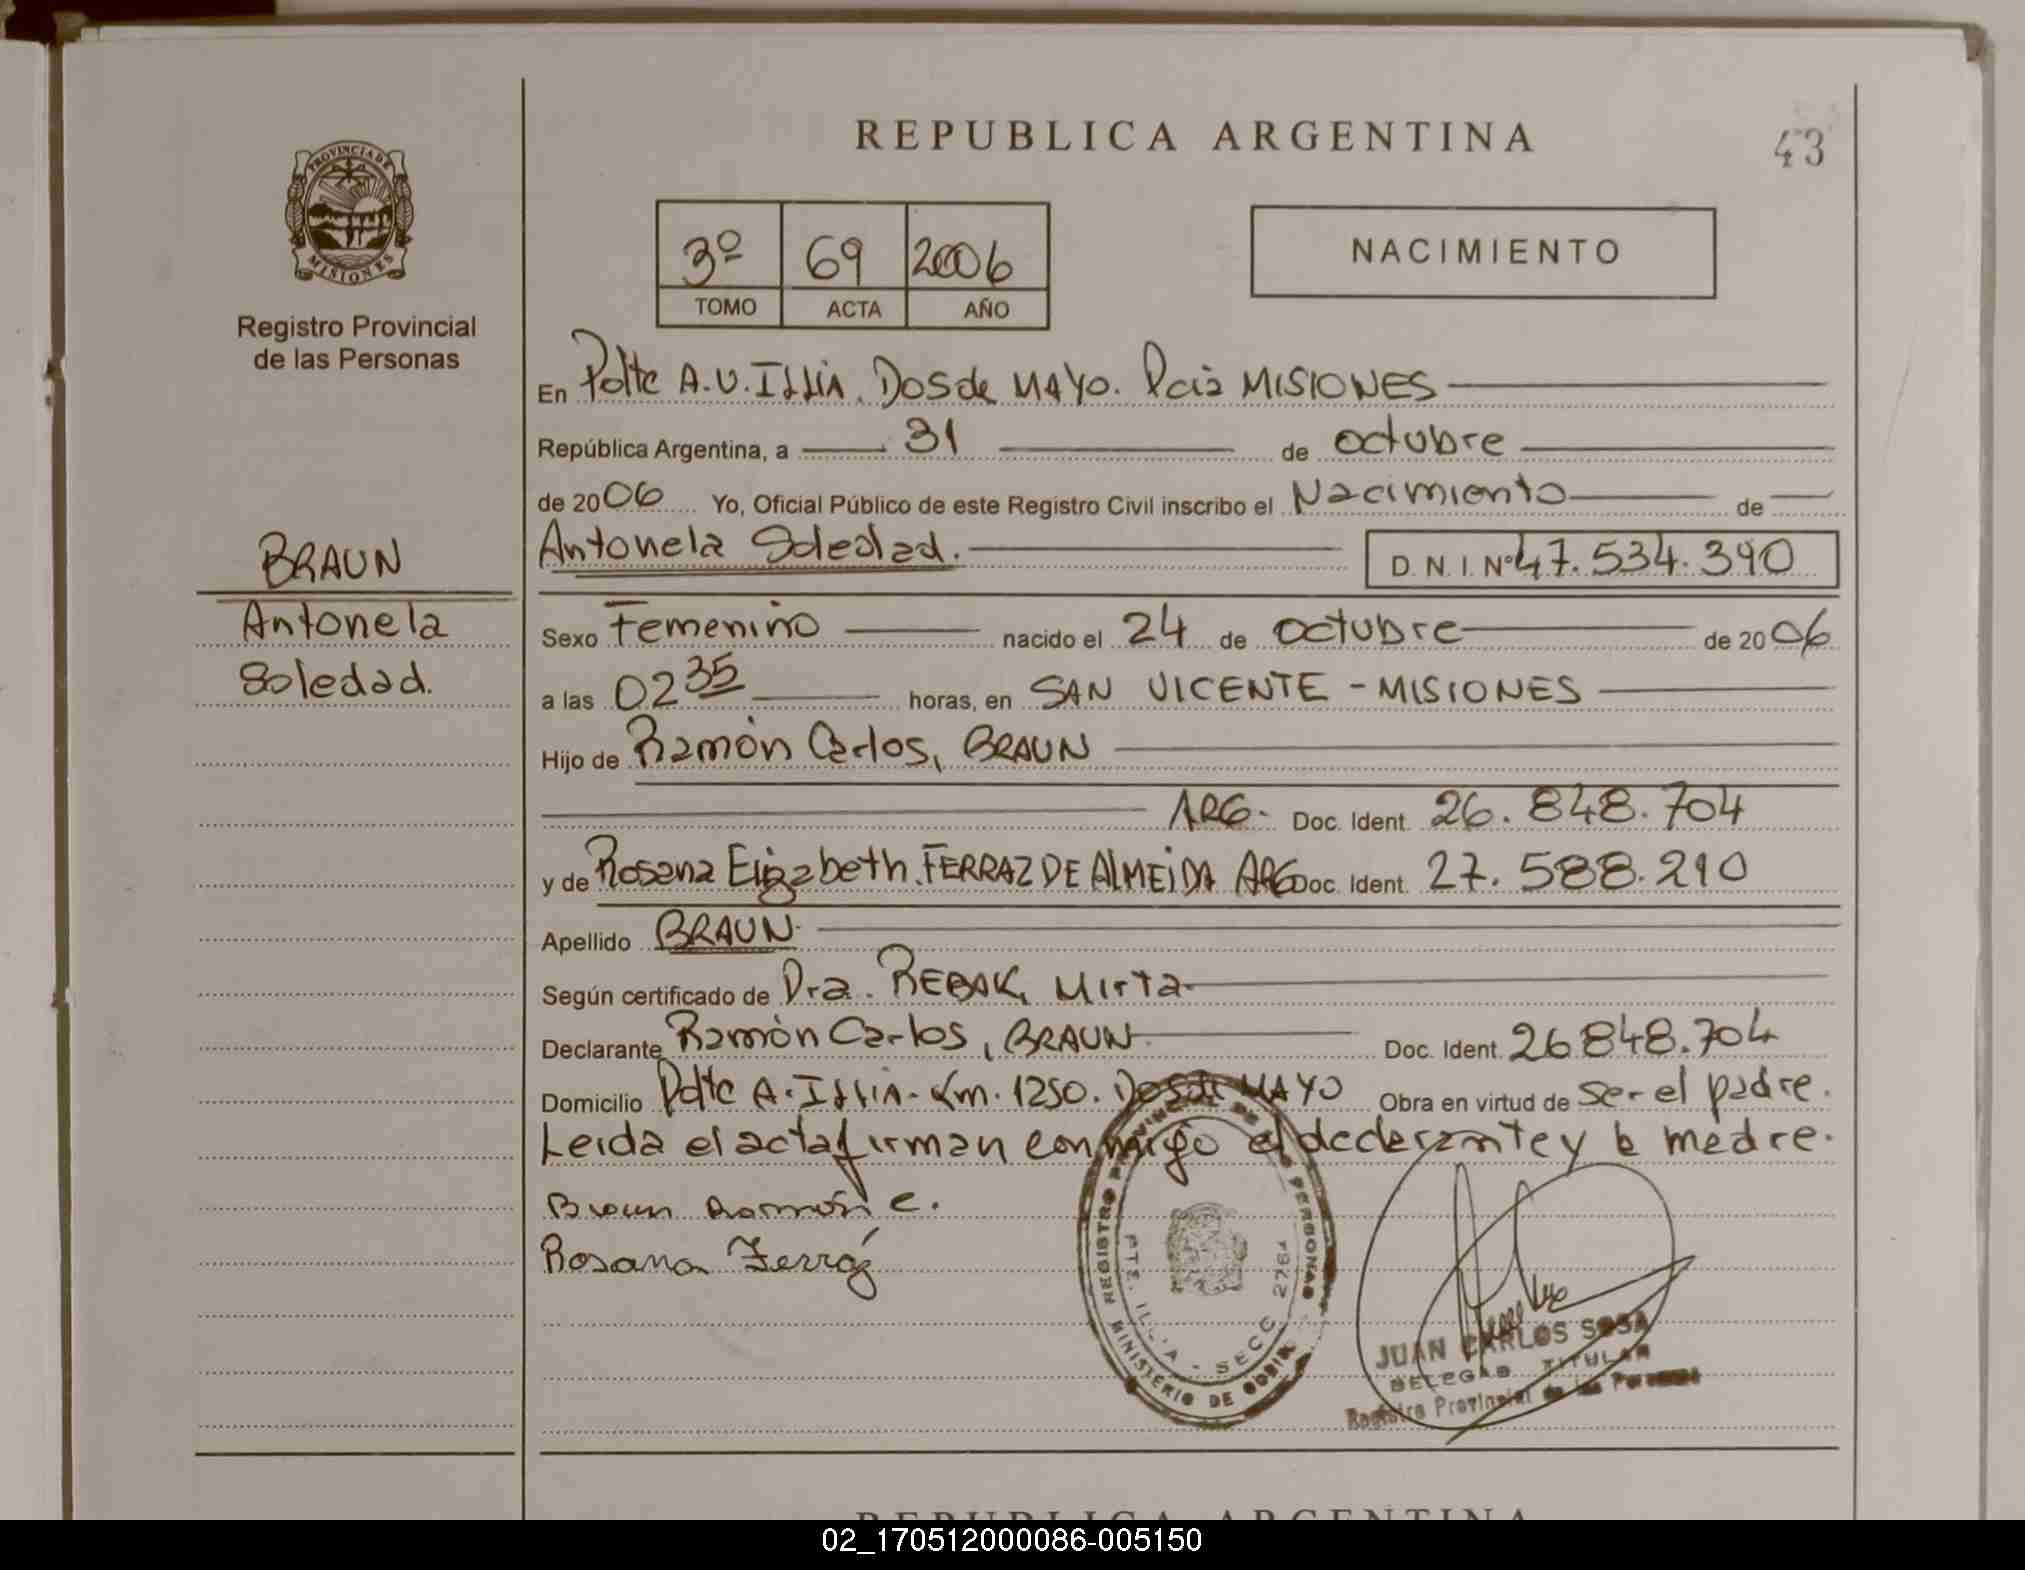 REPUBLICA ARGENTINA
43
PROVINCIA DE
MISIONES
Registro Provincial
de las Personas
3º 69 2006
TOMO ACTA AÑO
NACIMIENTO
En Pdte A.U. ILLIA. Dos de MAYO. Pcia MISIONES
República Argentina, a 31 de octubre
de 2006 Yo, Oficial Público de este Registro Civil inscribo el Nacimiento de
Antonela Soledad. D.N.I. Nº 47.534.390
BRAUN
Antonela
Soledad.
Sexo Femenino nacido el 24 de octubre de 2006
a las 02 35 horas, en SAN VICENTE - MISIONES
Hijo de Ramón Carlos, BRAUN
ARG. Doc. Ident. 26.848.704
y de Rosana Elizabeth. FERRAZ DE ALMEIDA ARG Doc. Ident. 27.588.210
Apellido BRAUN
Según certificado de Dra. REBAK, Mirta
Declarante Ramón Carlos, BRAUN Doc. Ident. 26848.704
Domicilio Pdte A. ILLIA - Km. 1250. Dos de MAYO Obra en virtud de ser el padre.
Leida el acta firman conmigo el declarante y la madre.
Braun Ramón C.
Rosana Ferráz
REGISTRO PROVINCIAL DE LAS PERSONAS
MINISTERIO DE GOBIERNO
PTE. ILLIA - SECC 2764
JUAN CARLOS SOSA
DELEGADO TITULAR
Registro Provincial de las Personas
REPUBLICA ARGENTINA
02_170512000086-005150